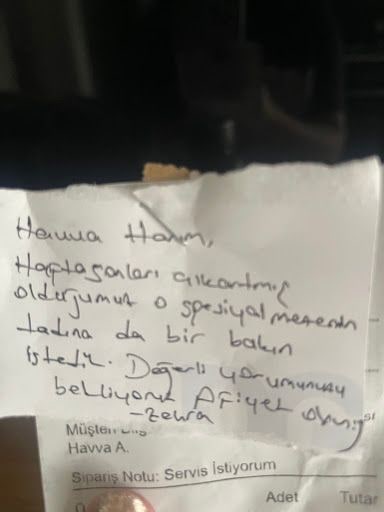 Havva Hanım,
Haftasonları çıkartmış
olduğumuz o spesiyal mezenin
tadına da bir bakın
istedik. Değerli yorumunuzu
bekliyoruz Afiyet olsun
-Zehra
Müşteri
Havva A.
Sipariş Notu: Servis İstiyorum
Adet Tutar